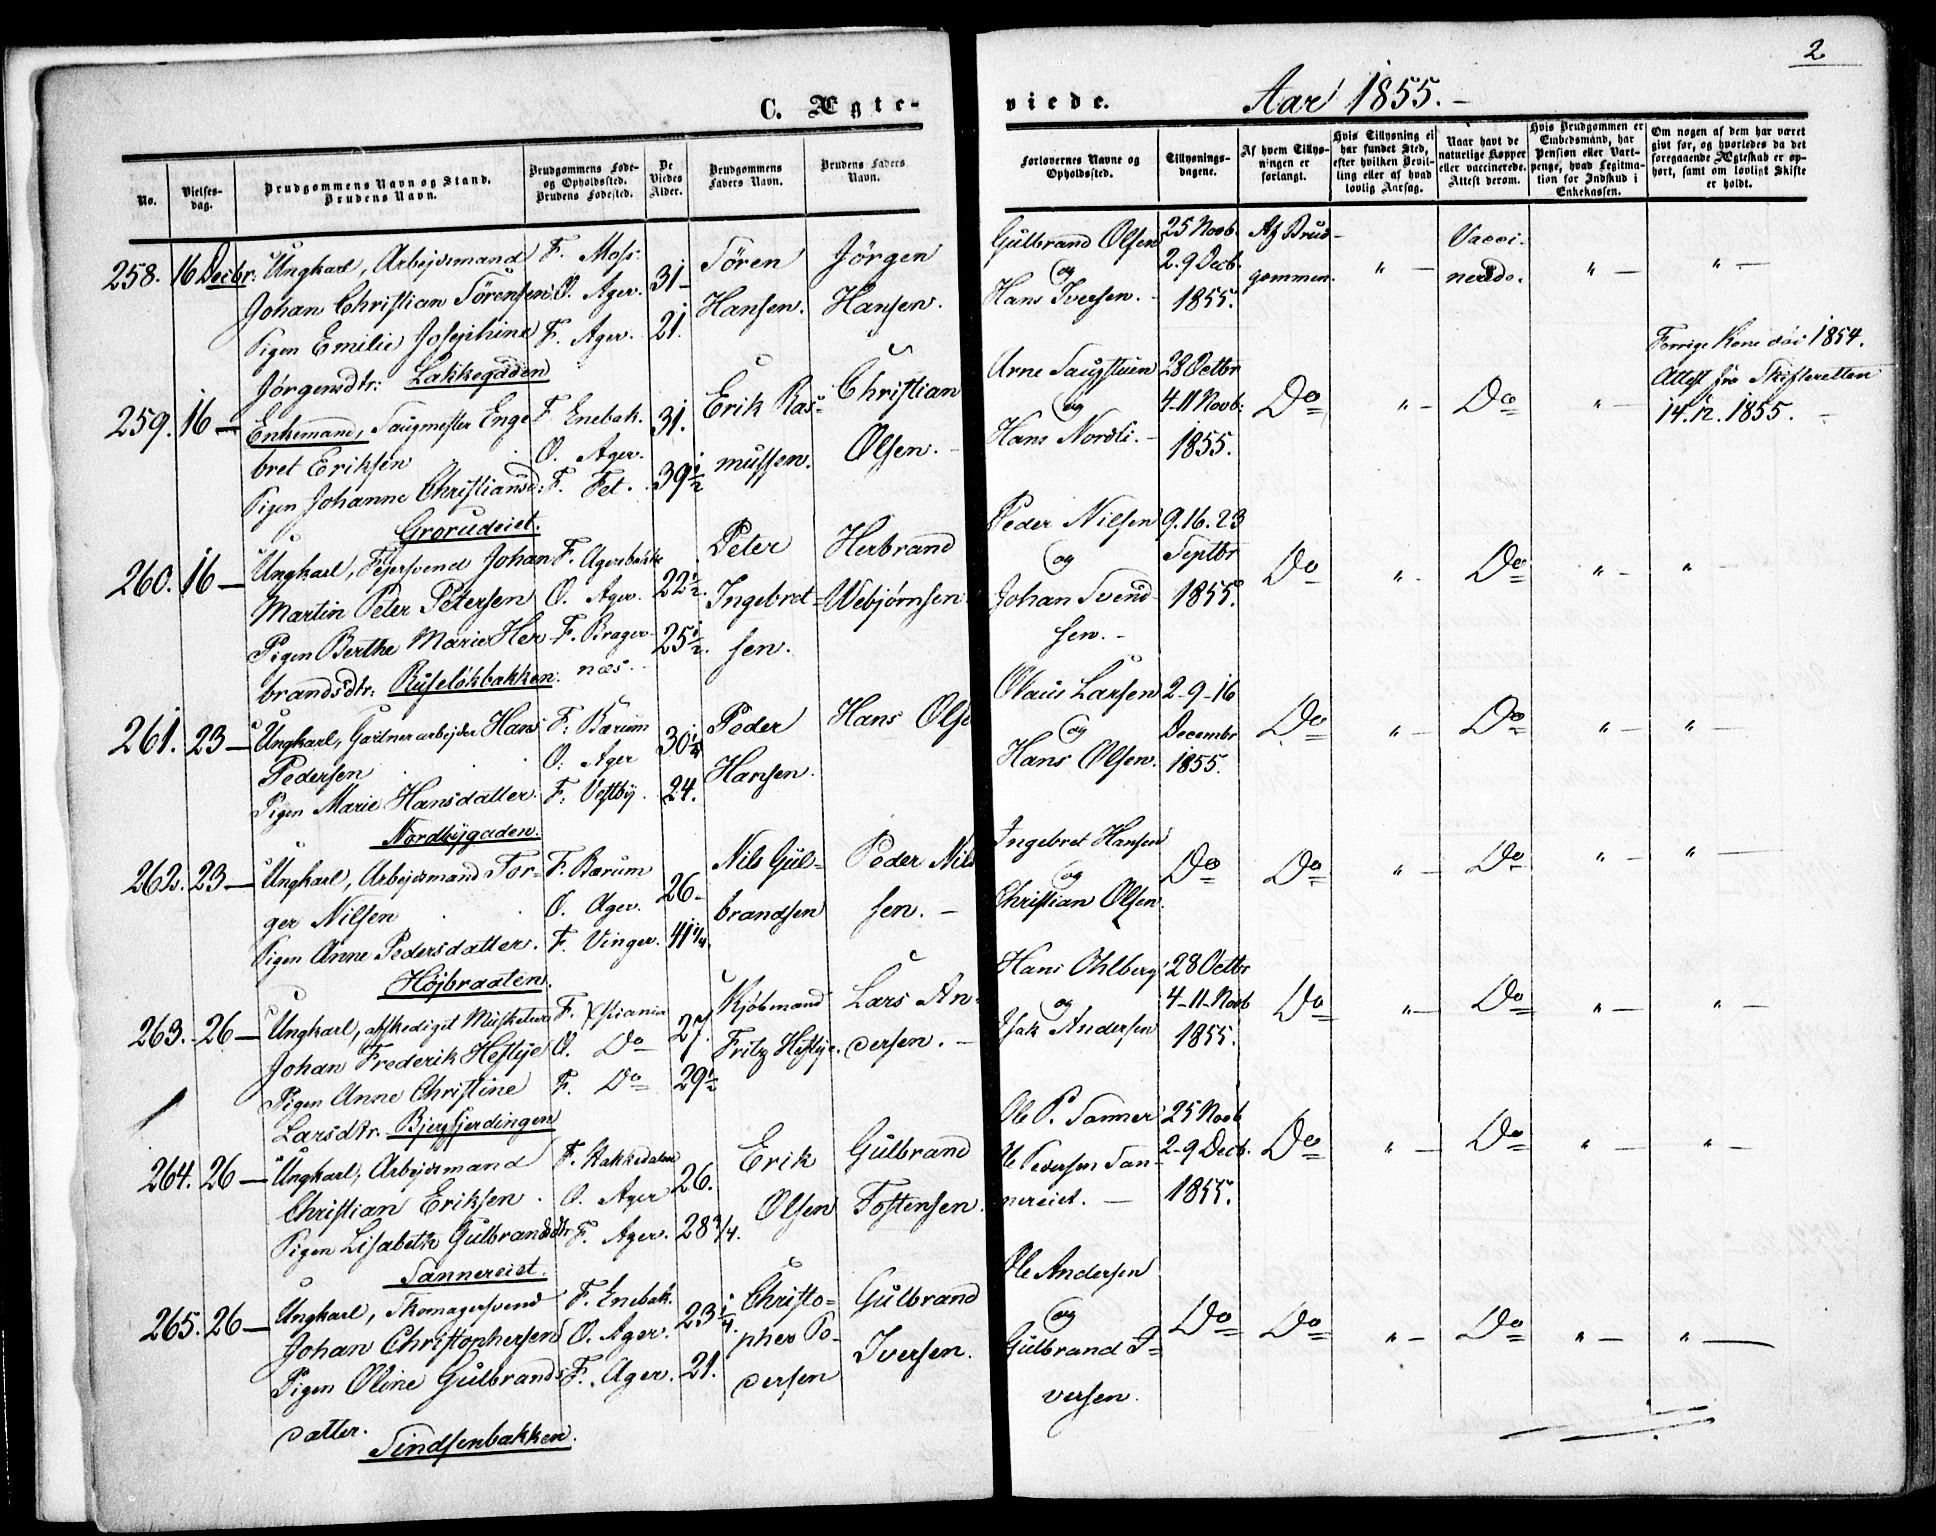 2
C. Ægte-
viede. Aar 1855.-
No.
Vielses-
dag.
Brudgommens Navn og Stand.
Brudens Navn.
Brudgommens Føde-
og Opholdssted.
Brudens Fødested.
De
Viedes
Alder.
Brudgommens
Faders Navn.
Brudens Faders
Navn.
Forlovernes Navne og
Opholdssted.
Tillysnings-
dagene.
Af hvem Tillys-
ningen er
forlangt.
Hvis Tillysning ei
har fundet Sted,
efter hvilken Bevil-
ling eller af hvad
lovlig Aarsag.
Naar havt de
naturlige Kopper
eller vaccinerede.
Attest derom.
Hvis Brudgommen er
Embedsmand, har
Pension eller Vart-
penge, hvad Legitima-
tion for Indskud i
Enkekassen.
Om nogen af dem har været
givt før, og hvorledes da det
foregaaende Ægteskab er op-
hørt, samt om lovligt Skifte
er holdt.
258. 16 Decbr:
Ungkarl, Arbejdsmand
Johan Christian Sörensen
Pigen Emilie Josephine
Jörgensdtr: Lakkegaden
F. Moss.
O. Ager.
F. Ager.
31
21.
Sören
Hansen.
Jörgen
Hansen.
Gulbrand Olsen
og
Hans Iversen.-
25 Novb.
2. 9 Decb.
1855.
Af Brud-
gommen.
" -
Vacci-
nerede.
" -
" -
259. 16 -
Enkemand, Saugmester Enge
bret Eriksen
Pigen Johanne Christiansd:
Grorudeiet.
F. Enebak.
O. Ager.
F. Fet.
31.
39 1/2
Erik Ras-
mussen.
Christian
Olsen.-
Arne Saugstuen
og
Hans Nordli.-
28 Octbr
4-11 Novb:
1855.
Do
" -
Do
" -
Forrige Kone död 1854.
Attest fra Skifteretten
14.12.1855.-
260. 16 -
Ungkarl, Fejersvend Johan
Martin Peter Petersen
Pigen Berthe Marie Her
brandsdtr: Ruseløkbakken.
F. Agersbakke
O. Ager.
F. Brager-
næs.
22 1/2.
25 1/2.
Peter
Ingebret-
sen.
Herbrand
Webjørnsen
Peder Nilsen
og
Johan Svend
sen.-
9. 16. 23
Septbr
1855.
Do
" -
Do
" -
" -
261. 23 -
Ungkarl, Gartnerarbejder Hans
Pedersen
Pigen Marie Hansdatter.
Nordbygaden.
F. Bærum
O. Ager
F. Vestby.
30 1/4
24.
Peder
Hansen.
Hans Olse
Olaus Larsen
og
Hans Olsen.
2-9-16
Decembr
1855.
Do
" -
Do
" -
" -
262. 23 -
Ungkarl, Arbejdsmand Tor-
ger Nilsen
Pigen Anne Pedersdatter.
Højbraaten.
F. Bærum
O. Ager.
F. Vinger.
26-
41 1/4.
Nils Gul-
brandsen
Peder Nils
sen.-
Ingebret Hansen
og
Christian Olsen.
Do
Do
" -
Do
" -
" -
263. 26 -
Ungkarl, afskediget Musketeer
Johan Frederik Heftye
Pigen Anne Christine
Larsdtr. Bjergfjerdingen
F. Xstiania
O. Do
F. Do
27.
29 1/2
Kjöbmand
Fritz Heftye.
Lars An-
dersen.-
Hans Ohlberg
og
Isak Andersen
28 Octbr
4-11-Novb
1855.
Do
" -
Do
" -
" -
264. 26 -
Ungkarl, Arbejdsmand
Christian Eriksen.
Pigen Lisabeth Gulbrandsdtr
Sannereiet.
F. Hakkedalen
O. Ager
F. Ager.
26.
28 3/4.
Erik
Olsen
Gulbrand
Tostensen.
Ole P. Sanner
Ole Pedersen San-
nereiet.-
25 Novb
2-9 Decb.
1855.
Do
" -
Do
" -
" -
265. 26 -
Ungkarl, Skomagersvend
Johan Christophersen
Pigen Oline Gulbrands
datter.
Sindsenbakken.
F. Enebak.
O. Ager.
F. Ager.
23 1/4.
21.
Christo-
pher Pe-
dersen
Gulbrand
Iversen.
Ole Andersen
og
Gulbrand I-
versen.
Do
Do
" -
Do
" -
" -